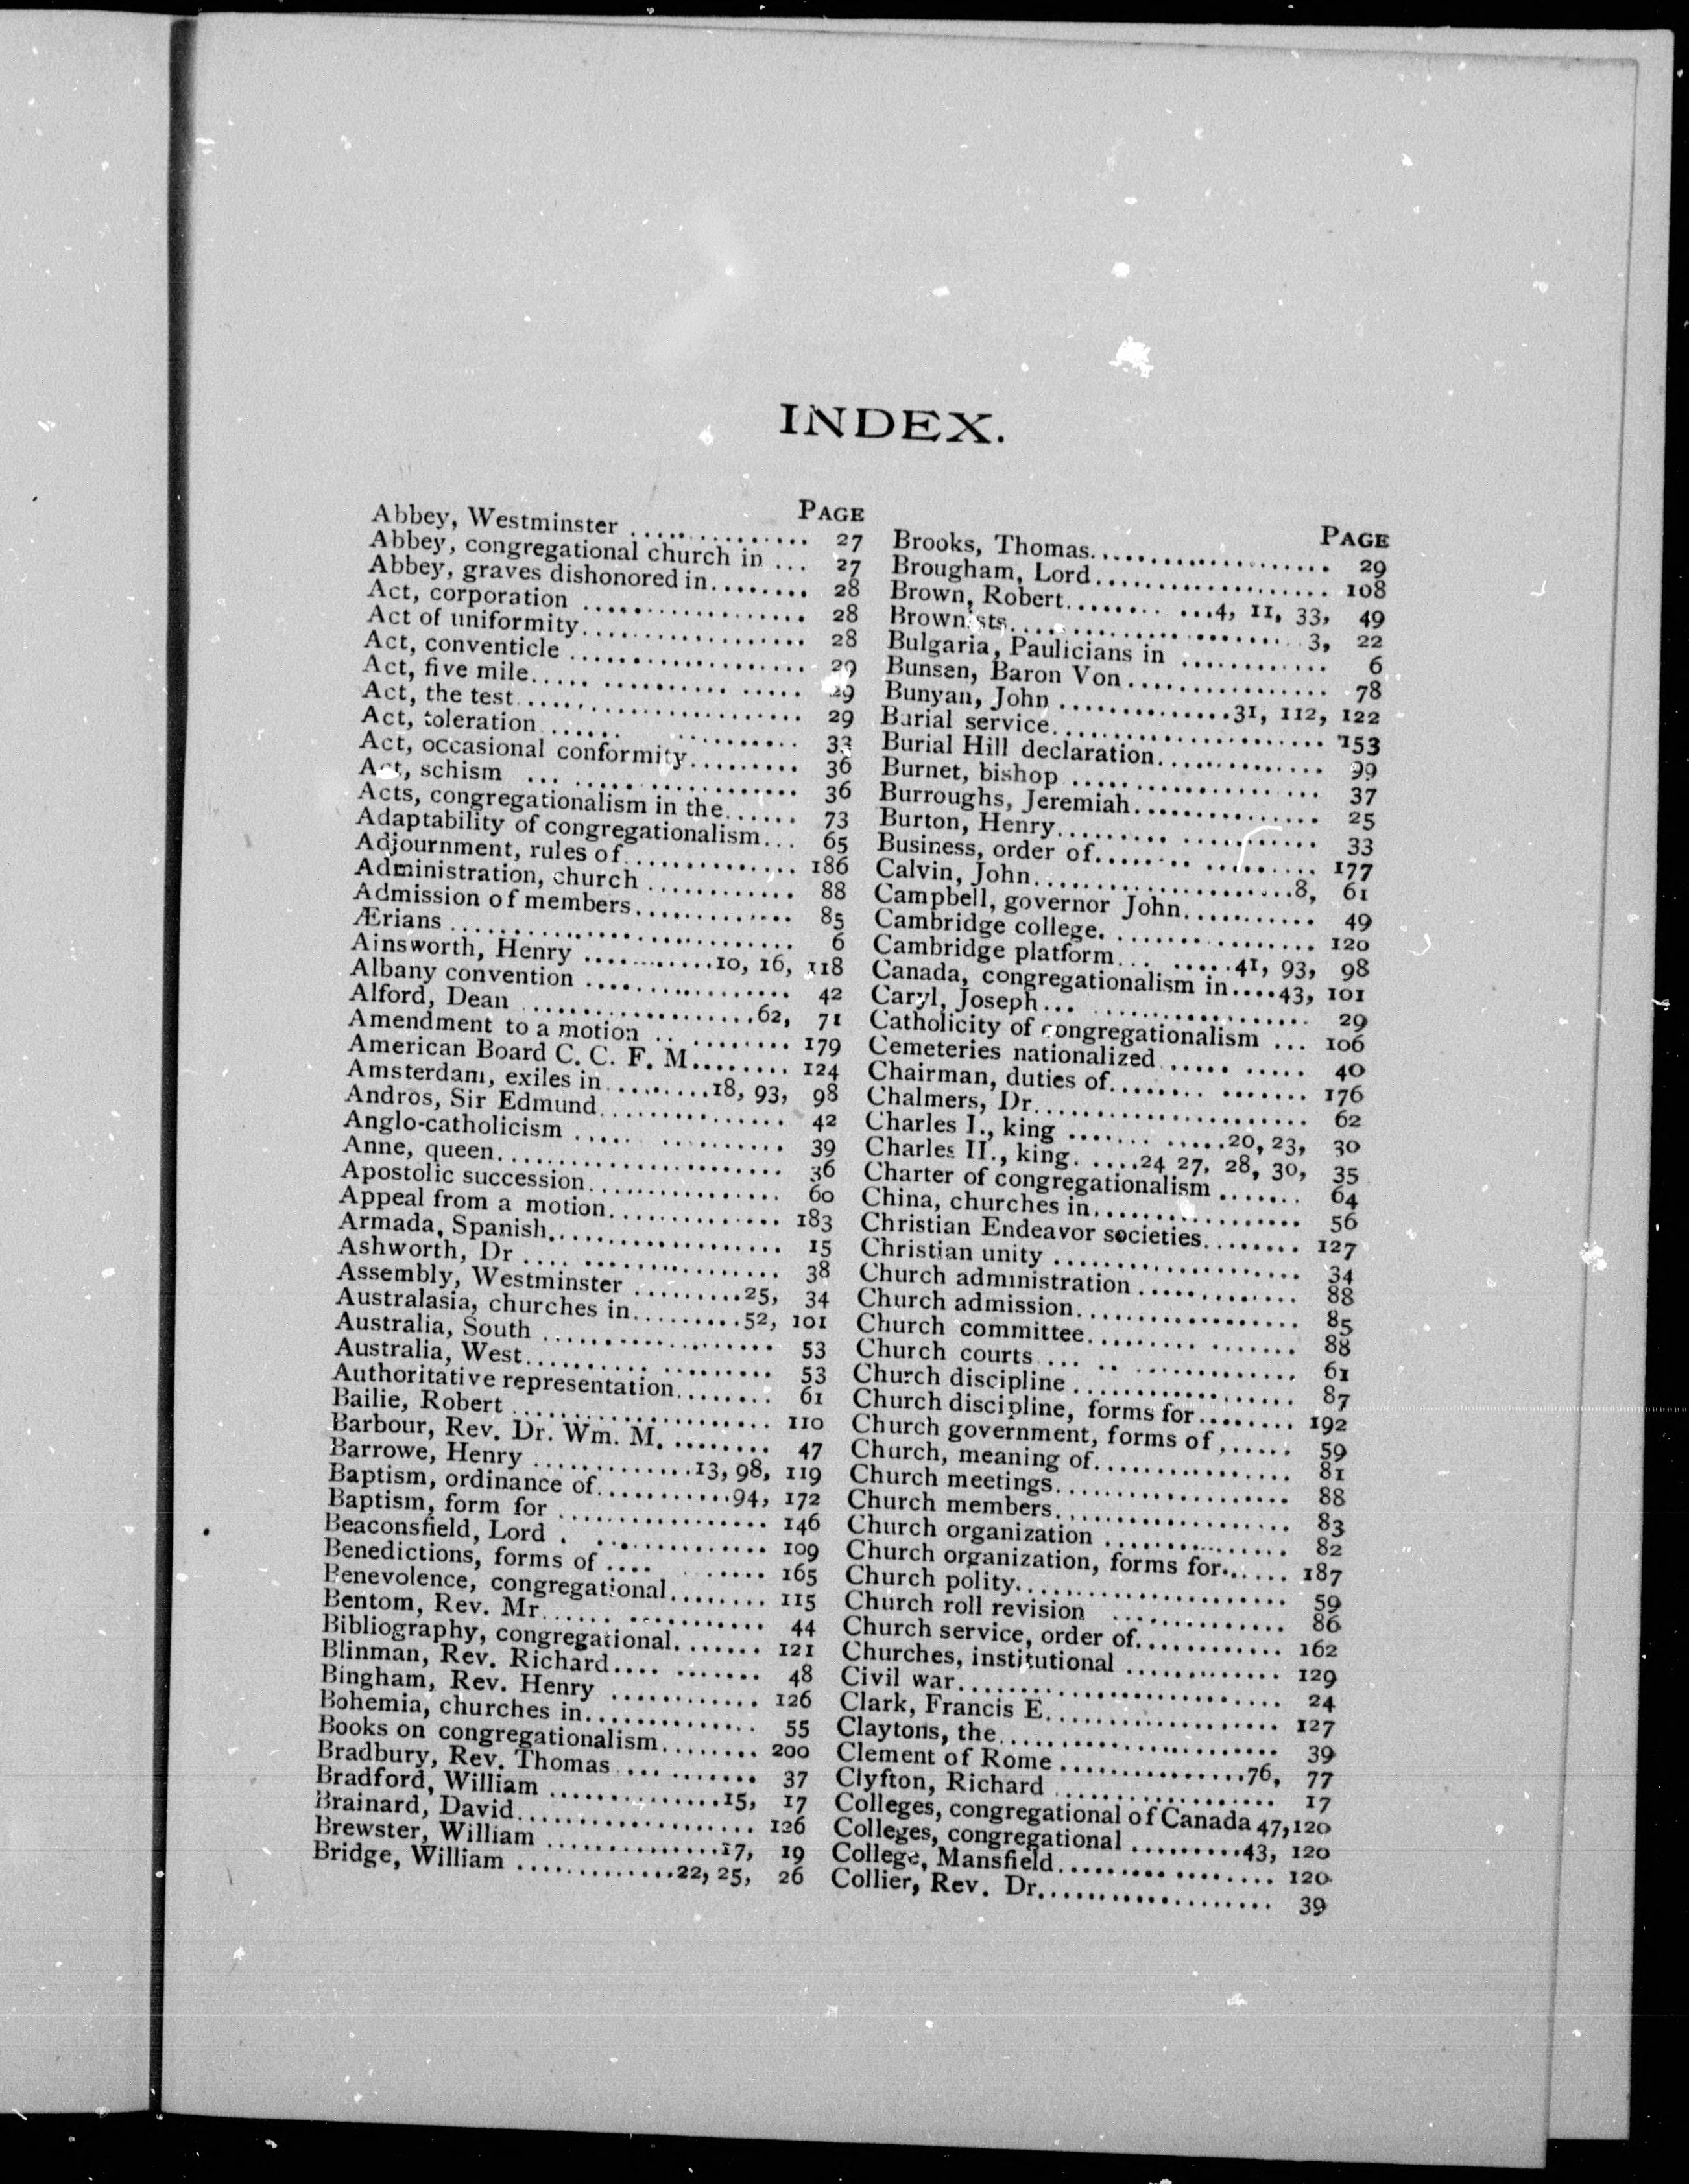 INDEX.
PAGE
Abbey, Westminster ................ 27
Abbey, congregational church in ... 27
Abbey, graves dishonored in......... 28
Act, corporation .................... 28
Act of uniformity.................... 28
Act, conventicle .................... 29
Act, five mile..... ........... ..... 29
Act, the test........................ 29
Act, toleration ...... ........... 33
Act, occasional conformity......... 36
Act, schism ... .................... 36
Acts, congregationalism in the...... 73
Adaptability of congregationalism... 65
Adjournment, rules of............... 186
Administration, church ............. 88
Admission of members.............. 85
Ærians ............................. 6
Ainsworth, Henry ............10, 16, 118
Albany convention .................. 42
Alford, Dean .....................62, 71
Amendment to a motion .. ......... 179
American Board C. C. F. M......... 124
Amsterdam, exiles in..........18, 93, 98
Andros, Sir Edmund................. 42
Anglo-catholicism ..... ........... 39
Anne, queen......................... 36
Apostolic succession................. 60
Appeal from a motion............... 183
Armada, Spanish..................... 15
Ashworth, Dr .... ................. 38
Assembly, Westminster ..........25, 34
Australasia, churches in..........52, 101
Australia, South ..................... 53
Australia, West........... .......... 53
Authoritative representation........ 61
Bailie, Robert ....................... 110
Barbour, Rev. Dr. Wm. M. ......... 47
Barrowe, Henry ..............13, 98, 119
Baptism, ordinance of............94, 172
Baptism, form for .................. 146
Beaconsfield, Lord . ............... 109
Benedictions, forms of .... ....... 165
Benevolence, congregational......... 115
Bentom, Rev. Mr...... ............ 44
Bibliography, congregational........ 121
Blinman, Rev. Richard.... ....... 48
Bingham, Rev. Henry ............ 126
Bohemia, churches in............... 55
Books on congregationalism........ 200
Bradbury, Rev. Thomas .... ....... 37
Bradford, William ...............15, 17
Brainard, David..................... 126
Brewster, William ................17, 19
Bridge, William ..............22, 25, 26
PAGE
Brooks, Thomas..................... 29
Brougham, Lord..................... 108
Brown, Robert........ ...4, 11, 33, 49
Brownists..........................3, 22
Bulgaria, Paulicians in ............ 6
Bunsen, Baron Von ................. 78
Bunyan, John ...............31, 112, 122
Burial service........................ 153
Burial Hill declaration............... 99
Burnet, bishop ...................... 37
Burroughs, Jeremiah................ 25
Burton, Henry.......... ............ 33
Business, order of........ .......... 177
Calvin, John........................8, 61
Campbell, governor John............ 49
Cambridge college. ................. 120
Cambridge platform... ......41, 93, 98
Canada, congregationalism in....43, 101
Caryl, Joseph... ................... 29
Catholicity of congregationalism ... 106
Cemeteries nationalized ...... ..... 40
Chairman, duties of......... ....... 176
Chalmers, Dr....................... 62
Charles I., king ....... .....20, 23, 30
Charles II., king. .....24 27, 28, 30, 35
Charter of congregationalism ....... 64
China, churches in................... 56
Christian Endeavor societies........ 127
Christian unity ...................... 34
Church administration .............. 88
Church admission.................... 85
Church committee........... ....... 88
Church courts .... .. .............. 61
Church discipline .................... 87
Church discipline, forms for......... 192
Church government, forms of ...... 59
Church, meaning of................. 81
Church meetings..................... 88
Church members..................... 83
Church organization ................ 82
Church organization, forms for...... 187
Church polity........................ 59
Church roll revision ............... 86
Church service, order of............. 162
Churches, institutional .............. 129
Civil war............................. 24
Clark, Francis E..................... 127
Claytons, the......................... 39
Clement of Rome .................76, 77
Clyfton, Richard .................... 17
Colleges, congregational of Canada 47,120
Colleges, congregational ..........43, 120
College, Mansfield.......... ........ 120
Collier, Rev. Dr..................... 39